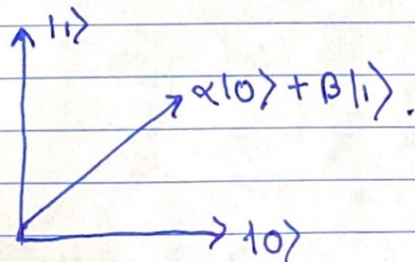 |1⟩
α|0⟩ + β|1⟩.
|0⟩